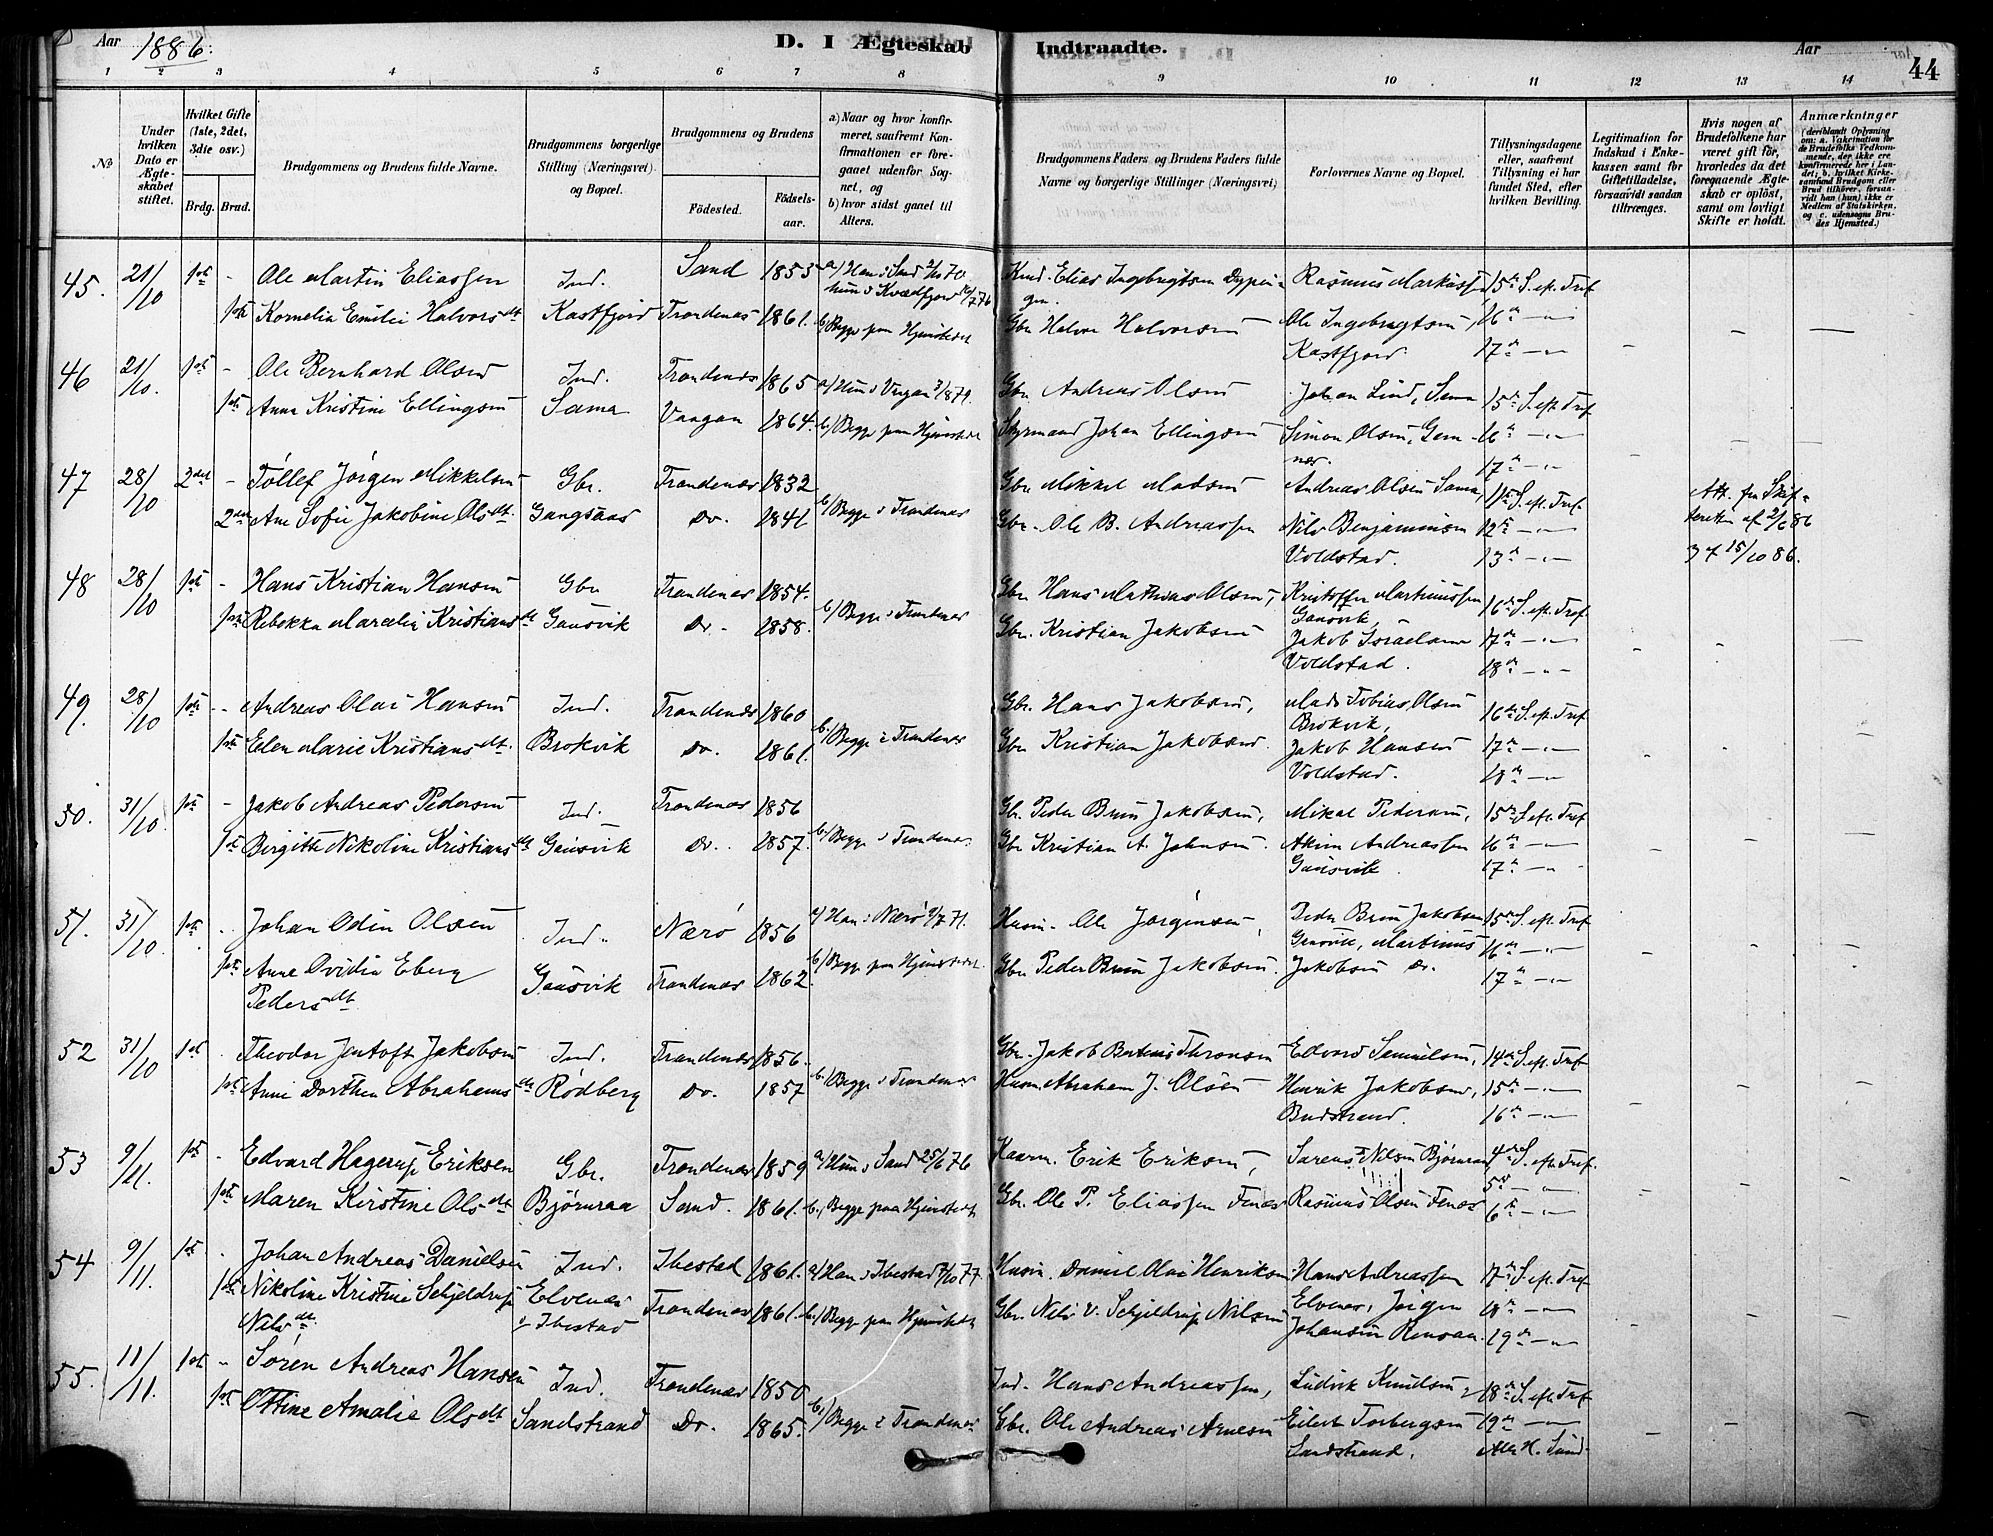 Aar 1886.
D. I Ægteskab Indtraadte.
Aar
44
1 2 3 4 5 6 7 8 9 10 11 12 13 14
No
Under hvilken Dato er Ægteskabet stiftet.
Hvilket Gifte (1ste, 2det, 3die osv.)
Brdg. Brud.
Brudgommens og Brudens fulde Navne.
Brudgommens borgerlige Stilling (Næringsvei) og Bopæl.
Brudgommens og Brudens
Födested. Födselsaar.
a) Naar og hvor konfirmeret, saafremt Konfirmationen er foregaaet udenfor Sognet, og
b) hvor sidst gaaet til Alters.
Brudgommens Faders og Brudens Faders fulde Navne og borgerlige Stillinger (Næringsvei)
Forlovernes Navne og Bopæl.
Tillysningsdagene eller, saafremt Tillysning ei har fundet Sted, efter hvilken Bevilling.
Legitimation for Indskud i Enkekassen samt for Giftetilladelse, forsaavidt saadan tiltrænges.
Hvis nogen af Brudefolkene har været gift för, hvorledes da det foregaaende Ægteskab er oplöst, samt om lovligt Skifte er holdt.
Anmærkninger
(deriblandt Oplysning om: a. Vakcination for de Brudefolks Vedkommende, der ikke ere konfirmerede her i Landet; b. hvilket Kirkesamfund Brudgom eller Brud tilhörer, forsaavidt han (hun) ikke er Medlem af Statskirken, og c. udensogns Brudes Hjemsted.)
45. 21/10 1ste - Ole Martin Eliassen Ind. Sand 1853 a/ Han i Sand 2/10 70 Elias Ingebrigtsen Rasmus Markussen, 15de S. eft. Tref
hun i Kvædfjord 16/7 76
1ste Kornelia Emilie Halvorsdt Kastfjord Trondenæs 1861. b/ Begge paa Hjemstedet Gbr Halvor Halvorsen Ole Ingebrigtsen, 16de -"-
Kastfjord. 17de -"-
46 21/10. 1ste - Ole Bernhard Olsen Ind. Trondenæs 1865 a/ Hun i Vaagan 3/8 79. Gbr Andreas Olsen Johan Lind, Sama 15de S. eft Tref
1ste Anna Kristine Ellingsen Sama Vaagan 1864. b/ Begge paa Hjemstedet Styrmand Johan Ellingsen Simon Olsen, 16de -"-
17de -"-
47 28/10 2det - Töllef Jörgen Mikkelsen Gbr. Trondenæs 1832 b/ Begge i Trondenæs Gbr Mikkel Madsen Andreas Olsen Sama, 11te S. eft. Tref. Att. fra Skifteretten af 2/6 86
2den Ane Sofie Jakobine Olsdt. Gangsaas Do. 1841 Gbr. Ole B. Andreassen Nils Benjaminsen 12te -"-
Voldstad. 13de -"- 15/10 86.
48 28/10 1ste - Hans Kristian Hansen Gbr Trondenæs 1854. b/ Begge i Trondenæs Gbr. Hans Mathias Olsen, Kristoffer Martinussen 16de S. eft. Tref
Gausvik,
1ste Rebekka Marcelia Kristiansdt Gausvik Do. 1858. Gbr. Kristian Jakobsen Jakob Israelsen 17de -"-
Voldstad. 18de -"-
49. 28/10 1ste - Andreas Olai Hansen Ind. Trondenæs 1860 b/ Begge i Trondenæs Gbr. Hans Jakobsen, Mads Tobias Olsen 16de S. eft. Tref
Brokvik,
1ste Elen Marie Kristiansdt. Brokvik Do. 1861. Gbr Kristian Jakobsen. Jakob Hansen 17de -"-
Voldstad. 18de -"-
50. 31/10. 1ste - Jakob Andreas Pedersen Ind. Trondenæs 1856 b/ Begge i Trondenæs. Gbr. Peder Brun Jakobsen, Mikal Pedersen, 15de S. eft. Tref
1ste Birgitte Nikoline Kristiansdt Gausvik Do. 1857. Gbr Kristian A. Johnsen. Akim Andreassen 16de -"-
Gausvik. 17de -"-
51. 31/10. 1ste - Johan Odin Olsen Ind. Nærö 1856 a/ Han i Nærö 9/7 71. Husm. Ole Jörgensen, Peder Brun Jakobsen 15de S. eft. Tref
Gausvik, Martinus 16de -"-
1ste Anne Ovidia Eberg Gausvik Trondenæs 1862. b/ Begge paa Hjemstedet. Gbr Peder Brun Jakobsen. Jakobsen Do. 17de -"-
Pedersdt
52 31/10 1ste - Theodor Jentoft Jakobsen Ind. Trondenæs 1856. b/ Begge i Trondenæs Gbr. Jakob Bertinus Thronsen Edvard Samuelsen, 14de S. eft. Tref
1ste Anne Dorthea Abrahamsdt Rödberg Do. 1857 Husm. Abraham J. Olsen Henrik Jakobsen, 15de -"-
Budstrand. 16de -"-
53 9/11. 1ste - Edvard Hagerup Eriksen Gbr. Trondenæs 1859 a/ Hun i Sand 25/6 76 Kaarm. Erik Eriksen, Sörens Nilsen Björnraa, 4de S. eft. Tref.
5te -"-
1ste Maren Kirstine Olsdt Björnraa Sand. 1861. b/ Begge paa Hjemstedet Gbr. Ole P. Eliassen Fenæs Rasmus Olsen Fenæs 6te -"-
54 9/11. 1ste - Johan Andreas Danielsen Ind. Ibestad 1861. a/ Han i Ibestad 7/10 77. Husm. Daniel Olai Henriksen Hans Andreassen 17de S. eft. Tref
1ste Nikoline Kristine Schjeldrup Elvenæs i Ibestad Trondenæs 1861. b/ Begge paa Hjemstedet Gbr. Nils V. Schjeldrup Nilsen Elvenæs, Jörgen 18de -"-
Nilsdt. Johansen 19de -"-
55. 11/11. 1ste - Sören Andreas Hansen Ind. Trondenæs 1850 b/ Begge i Trondenæs Ind. Hans Andreassen, Ludvik Knudsen, 18de S. eft. Tref
1ste Ottine Amalie Olsdt Sandstrand Do. 1865. Gbr. Ole Andreas Arnesen Eilert Torbergsen 19de -"-
Sandstrand. Alle H. Sönd.